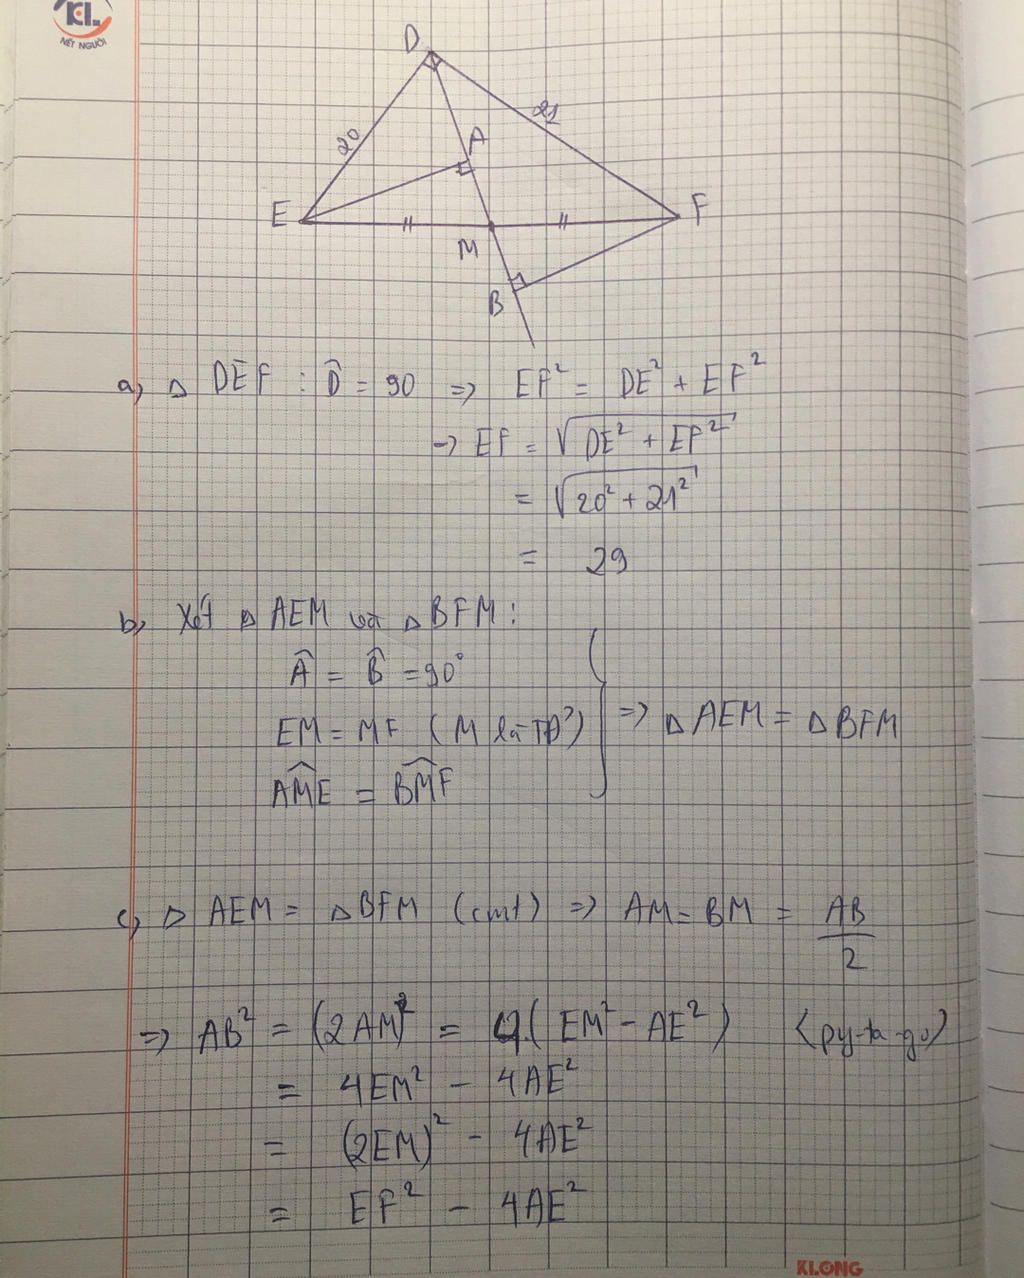 KL.
NÉT NGƯỜI
D
20
21
A
E
F
M
B
a) △ DEF : D̂ = 90 => EF² = DE² + EF²
-> EF = √DE² + EF²
= √20² + 21²
= 29
b) Xét △ AEM và △ BFM :
Â = B̂ = 90°
EM = MF ( M là TĐ )
AM̂E = BM̂F
} => △ AEM = △ BFM
c) △ AEM = △ BFM (cmt) => AM = BM = AB/2
=> AB² = (2AM)² = 4.( EM² - AE² ) (py-ta-go)
= 4EM² - 4AE²
= (2EM)² - 4AE²
= EF² - 4AE²
KLONG